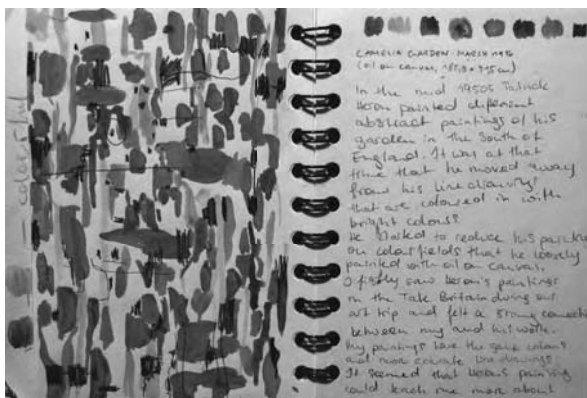 colourful
CAMELIA GARDEN: MARCH 1956
(oil on canvas,
In the mid 1950s Patrick
Heron painted different
abstract paintings of his
garden in the South of
England. It was at that
time that he moved away
from his line drawings
that are coloured in with
bright colours.
He started to reduce his
on colorfields that he loosely
painted with oil on canvas.
I firstly saw Heron's paintings
in the Tate Britain during our
art trip and felt a strong
between my and his work.
My paintings have the same colours
and more line drawings.
It seemed that Heron's painting
could teach me more about